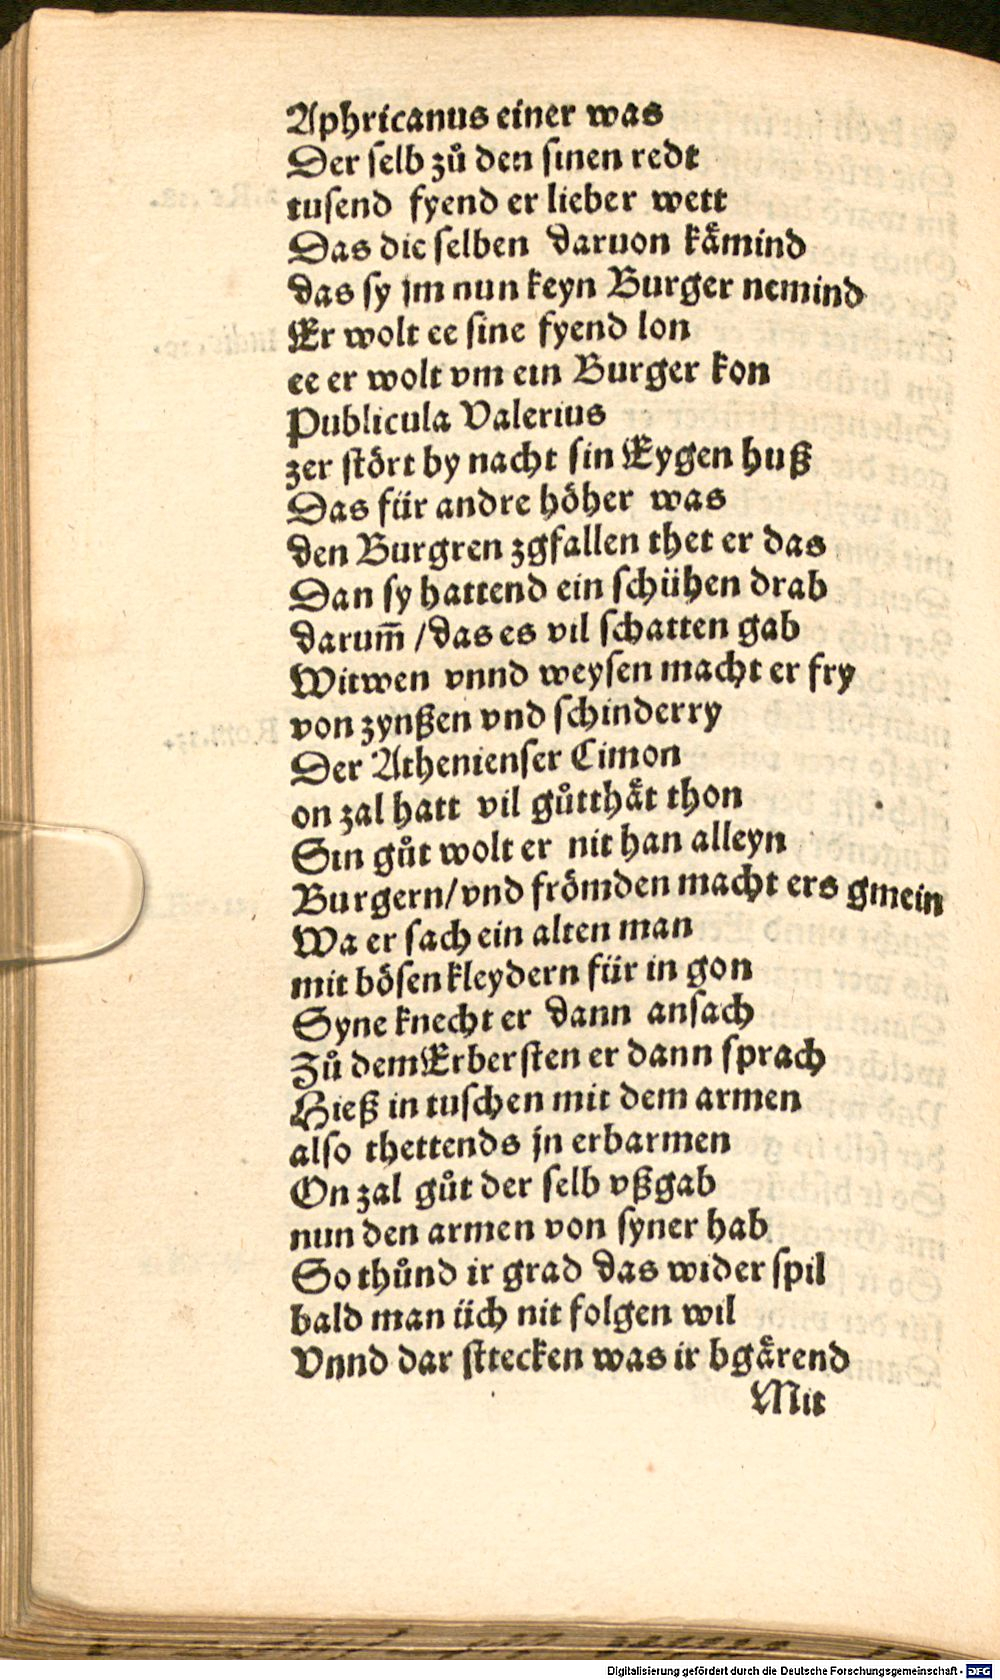 Aphricanus einer was
Der selb zů den sinen redt
tusend fyend er lieber wett
Das die selben daruon kåmind
das sy jm nun keyn Burger nemind
Er wolt ee sine fyend lon
ee er wolt vm ein Burger kon
Publicula Valerius
zer stört by nacht sin Eygen huß
Das für andre höher was
den Burgren zgfallen thet er das
Dan sy hattend ein schühen drab
darum̄ /das es vil schatten gab
Witwen vnnd weysen macht er fry
von zynßen vnd schinderry
Der Athenienser Cimon
on zal hatt vil gůtthåt thon
Sin gůt wolt er nit han alleyn
Burgern/vnd frömden macht ers gmein
Wa er sach ein alten man
mit bösen kleydern für in gon
Syne knecht er dann ansach
Zů dem Erbersten er dann sprach
Hieß in tuschen mit dem armen
also thettends jn erbarmen
On zal gůt der selb vßgab
nun den armen von syner hab
So thůnd ir grad das wider spil
bald man üch nit folgen wil
Vnnd dar strecken was ir bgårend
Mit
Digitalisierung gefördert durch die Deutsche Forschungsgemeinschaft - DFG